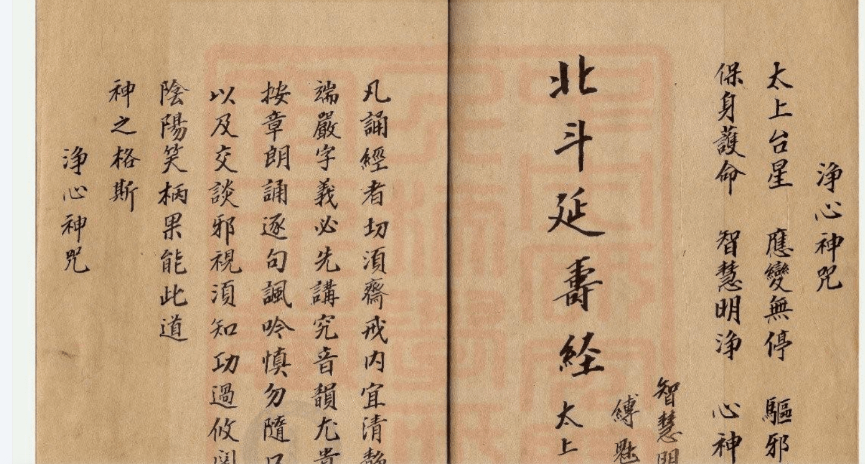 浄心神咒
太上台星　應變無停　驅邪
保身護命　智慧明浄　心神
智慧明
縛魅
北斗延壽経　太上
凡誦經者切湏齋戒内宜清靜
端嚴字義必先講究音韻尤貴
按章朗誦逐句諷吟慎勿隨口
以及交談邪視湏知功過攸
陰陽笑柄果能此道
神之格斯
浄心神咒